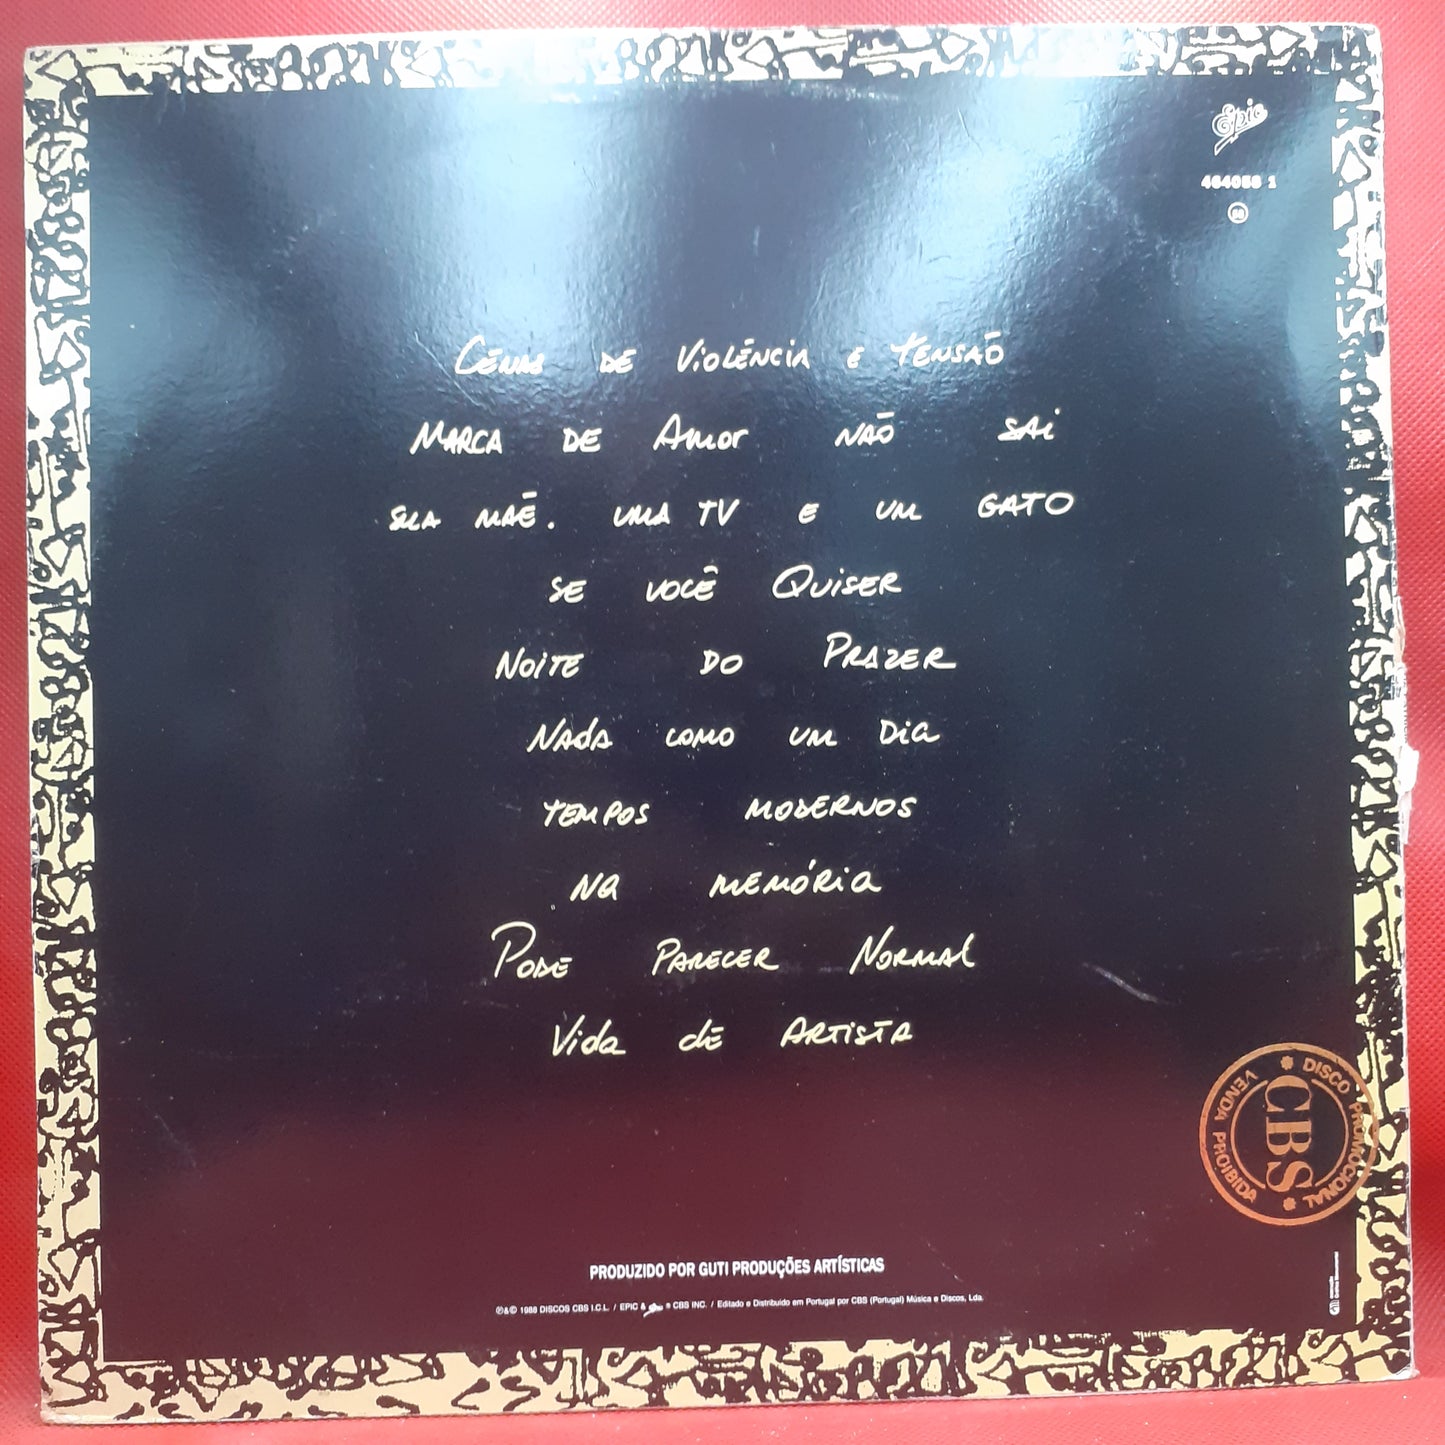 Epic
464058 1
CENAS DE VIOLÊNCIA E TENSÃO
MARCA DE AMOR NÃO SAI
SUA MÃE. UMA TV E UM GATO
SE VOCÊ QUISER
NOITE DO PRAZER
NADA COMO UM DIA
TEMPOS MODERNOS
NA MEMÓRIA
PODE PARECER NORMAL
VIDA DE ARTISTA
DISCO PROMOCIONAL * VENDA PROIBIDA *
CBS
PRODUZIDO POR GUTI PRODUÇÕES ARTÍSTICAS
℗&© 1988 DISCOS CBS I.C.L. / EPIC & ® CBS INC. / Editado e Distribuido em Portugal por CBS (Portugal) Música e Discos, Lda.